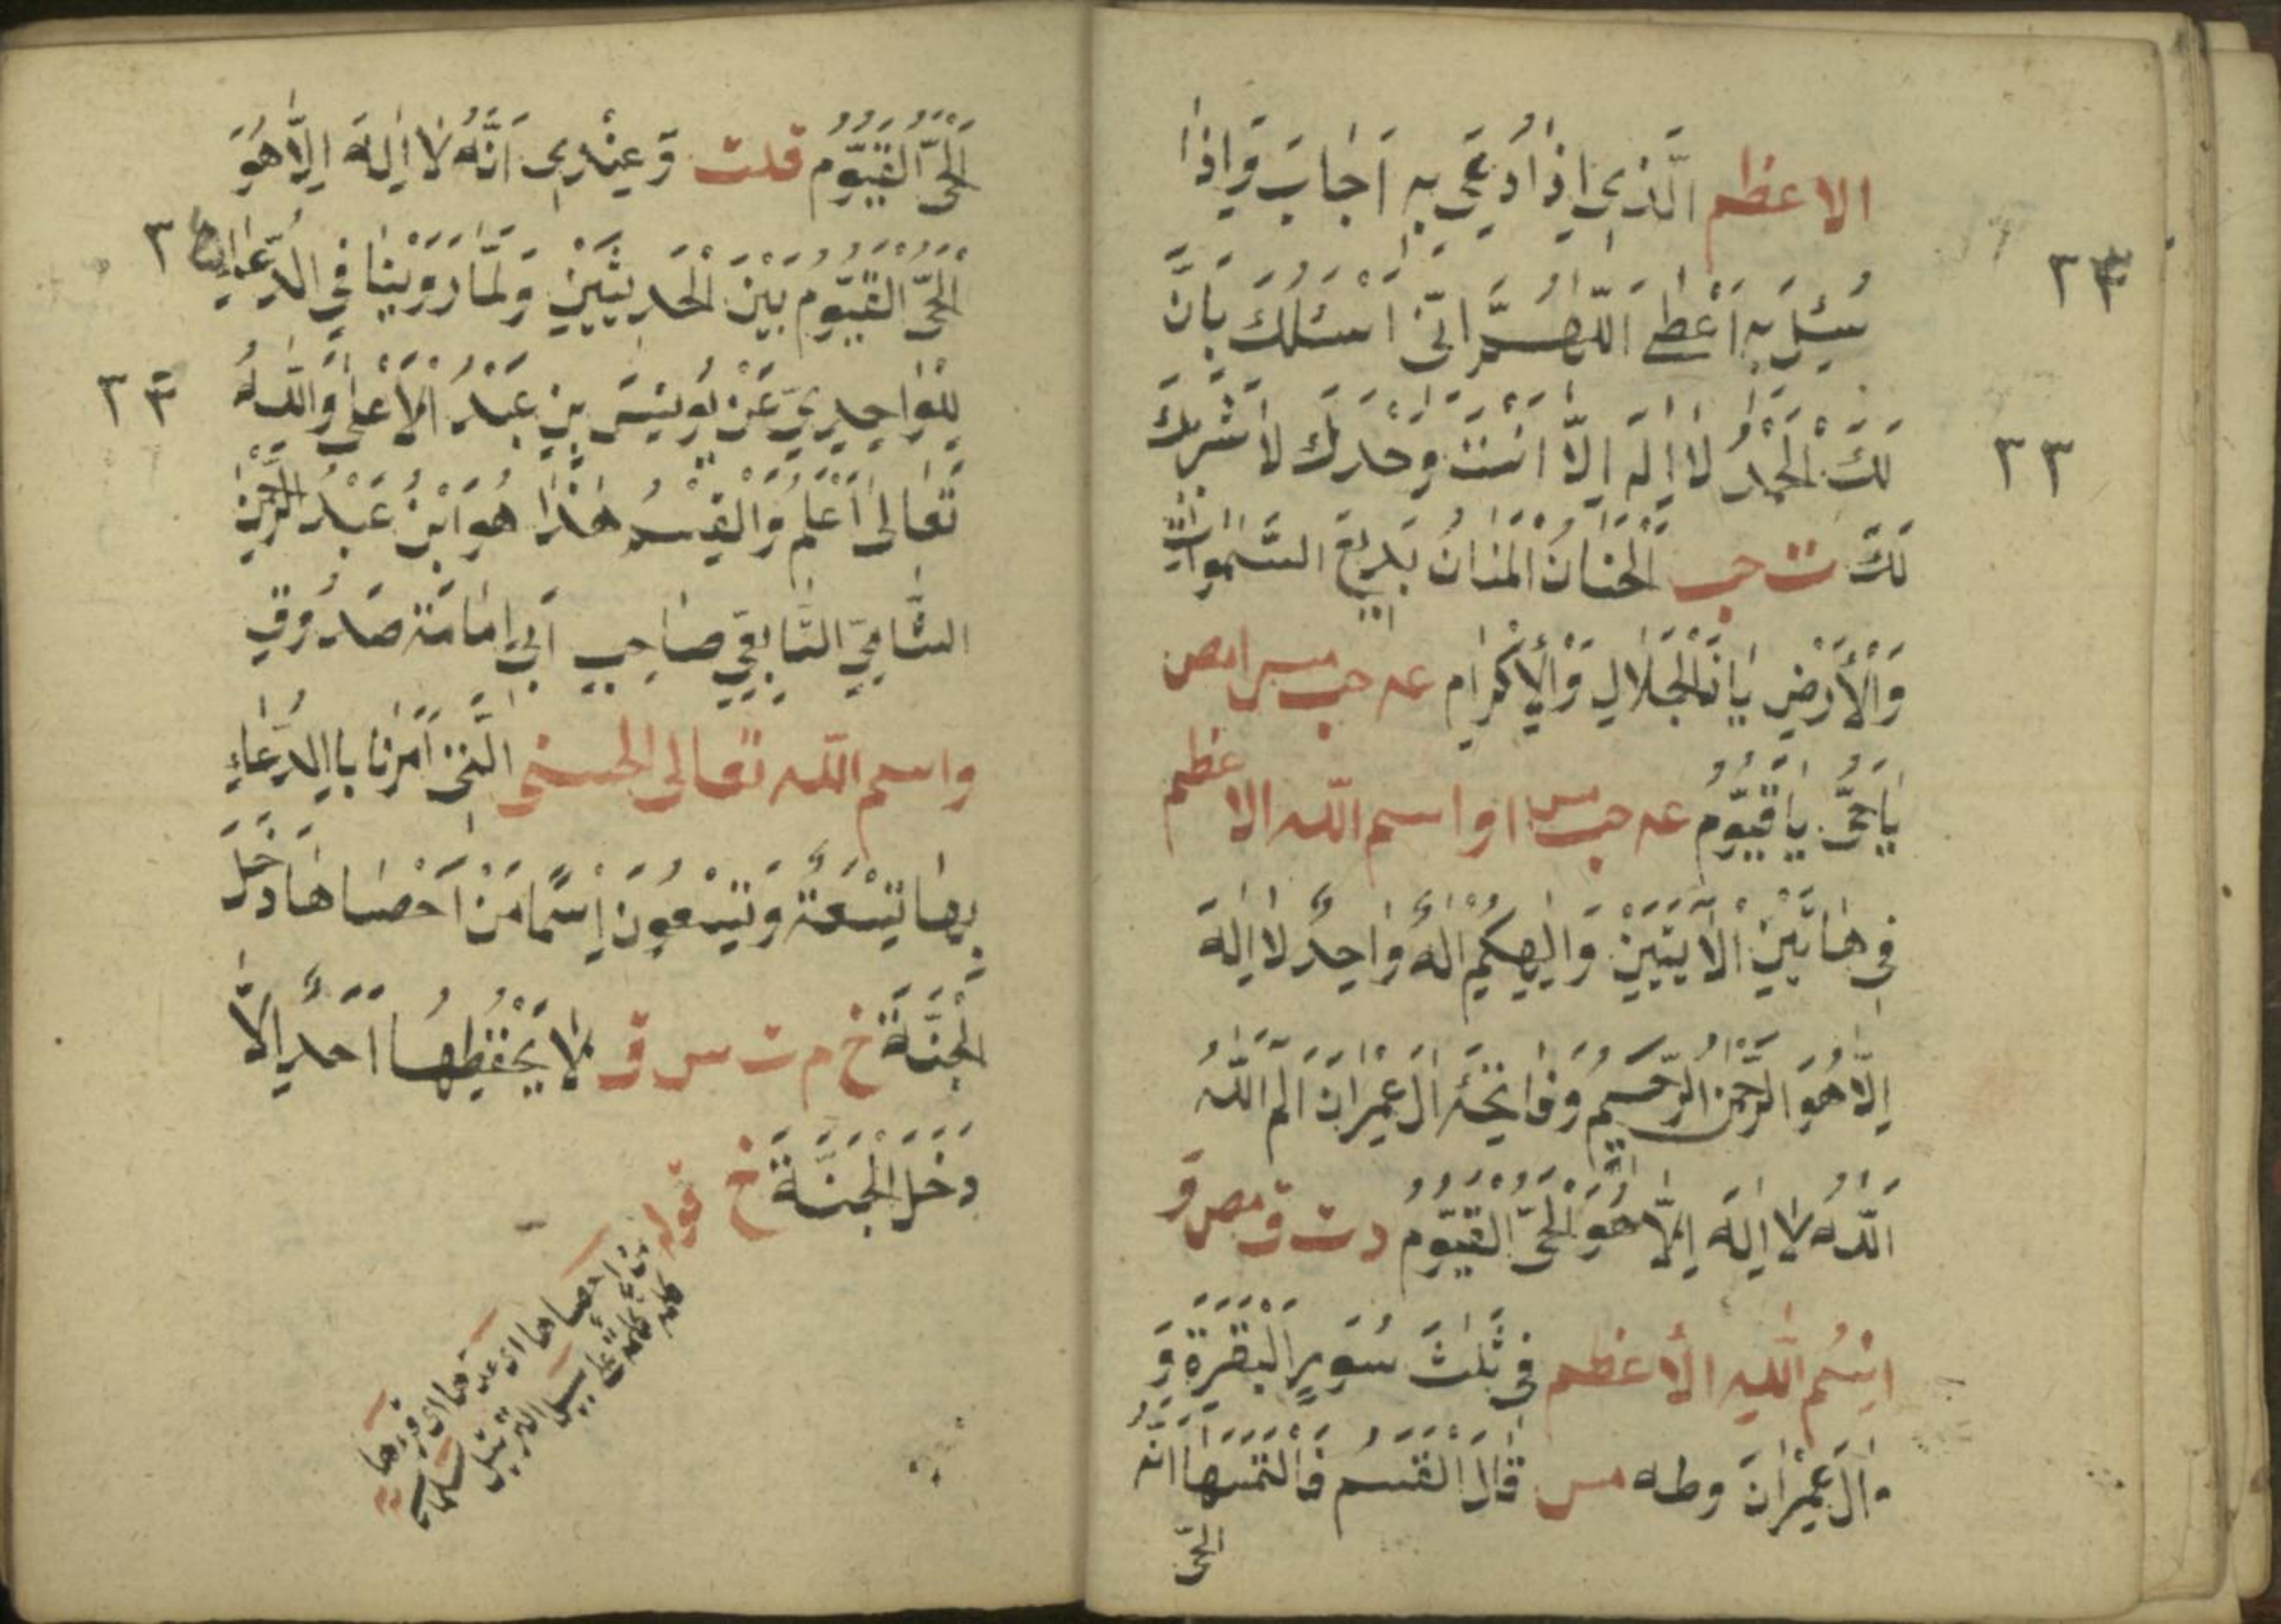 الاعظم الَّذِي اِذَا دُعِيَ بِهِ اَجَابَ وَاِذَا
٢٣
سُئِلَ بِهِ اَعْطٰى اَللّٰهُمَّ اِنّى اَسْئَلُكَ بِاَنَّ
لَكَ الْحَمْدُ لَا اِلٰهَ اِلَّا اَنْتَ وَحْدَكَ لَا شَرِيكَ
٢٣
لَكَ ت حب الْحَنَانُ الْمَنَانُ بَدِيعَ السَّمٰوَاتِ
وَالْاَرْضِ يَا ذَالْجَلَالِ وَالْاِكْرَامِ عه حب مس ا مص
يَا حَىُّ يَا قَيُّومُ عه حب مس ا و اسم اللّه الاعظم
فِى هَاتَيْنِ الْاٰيَتَيْنِ وَاِلٰهُكُمْ اِلٰهٌ وَاحِدٌ لَا اِلٰهَ
اِلَّا هُوَ الرَّحْمٰنُ الرَّحِيمُ وَفَاتِحَةِ اٰلِ عِمْرَانَ الٓم اللّٰهُ
اَللّٰهُ لَا اِلٰهَ اِلَّا هُوَ الْحَىُّ الْقَيُّومُ د ت ق مص و
اِسْمُ اللّٰهِ الْاَعْظَم فِى ثَلٰثِ سُوَرٍ الْبَقَرَةِ وَ
وَاٰلِ عِمْرَانَ وطه مس قَالَ الْقٰسِمُ فَالْتَمَسْتُهَا اَنَّهُ
الحىّ
الْحَىُّ الْقَيُّومُ قلت وَعِنْدِى اَنَّهُ لَا اِلٰهَ اِلَّا هُوَ
الْحَىُّ الْقَيُّومُ بَيْنَ الْحَدِيثَيْنِ وَلِمَا رَوَيْنَا فِى الدُّعَاءِ
لِلْوَاحِدِيِّ عَنْ يُونِسَ بِنِ عَبْدُ الْاَعْلٰى وَاللّٰهُ
تَعَالٰى اَعْلَمُ وَالْقٰسِمُ هٰذَا هُوَ ابْنُ عَبْدُ الرَّحْمٰنِ
الشَّامِيّ التَّابِعِي صَاحِبِ اَبِي اِمَامَة صَدُوقٍ
واسم اللّه تعالى الحسنى الَّتِى اُمَرْنَا بِالدُّعَاءِ
بِهَا تِسْعَةٌ وَتِسْعُونَ اِسْمًا مَنْ اَحْصَاهَا دَخَلَ
الْجَنَّةَ خ م ت س ق لَا يَحْفَظُهَا اَحَدٌ اِلَّا
دَخَلَ الْجَنَّةَ خ قوله
من احصاها اى عدها اى قرءها
كلمة كلمة على سبيل الترتيل